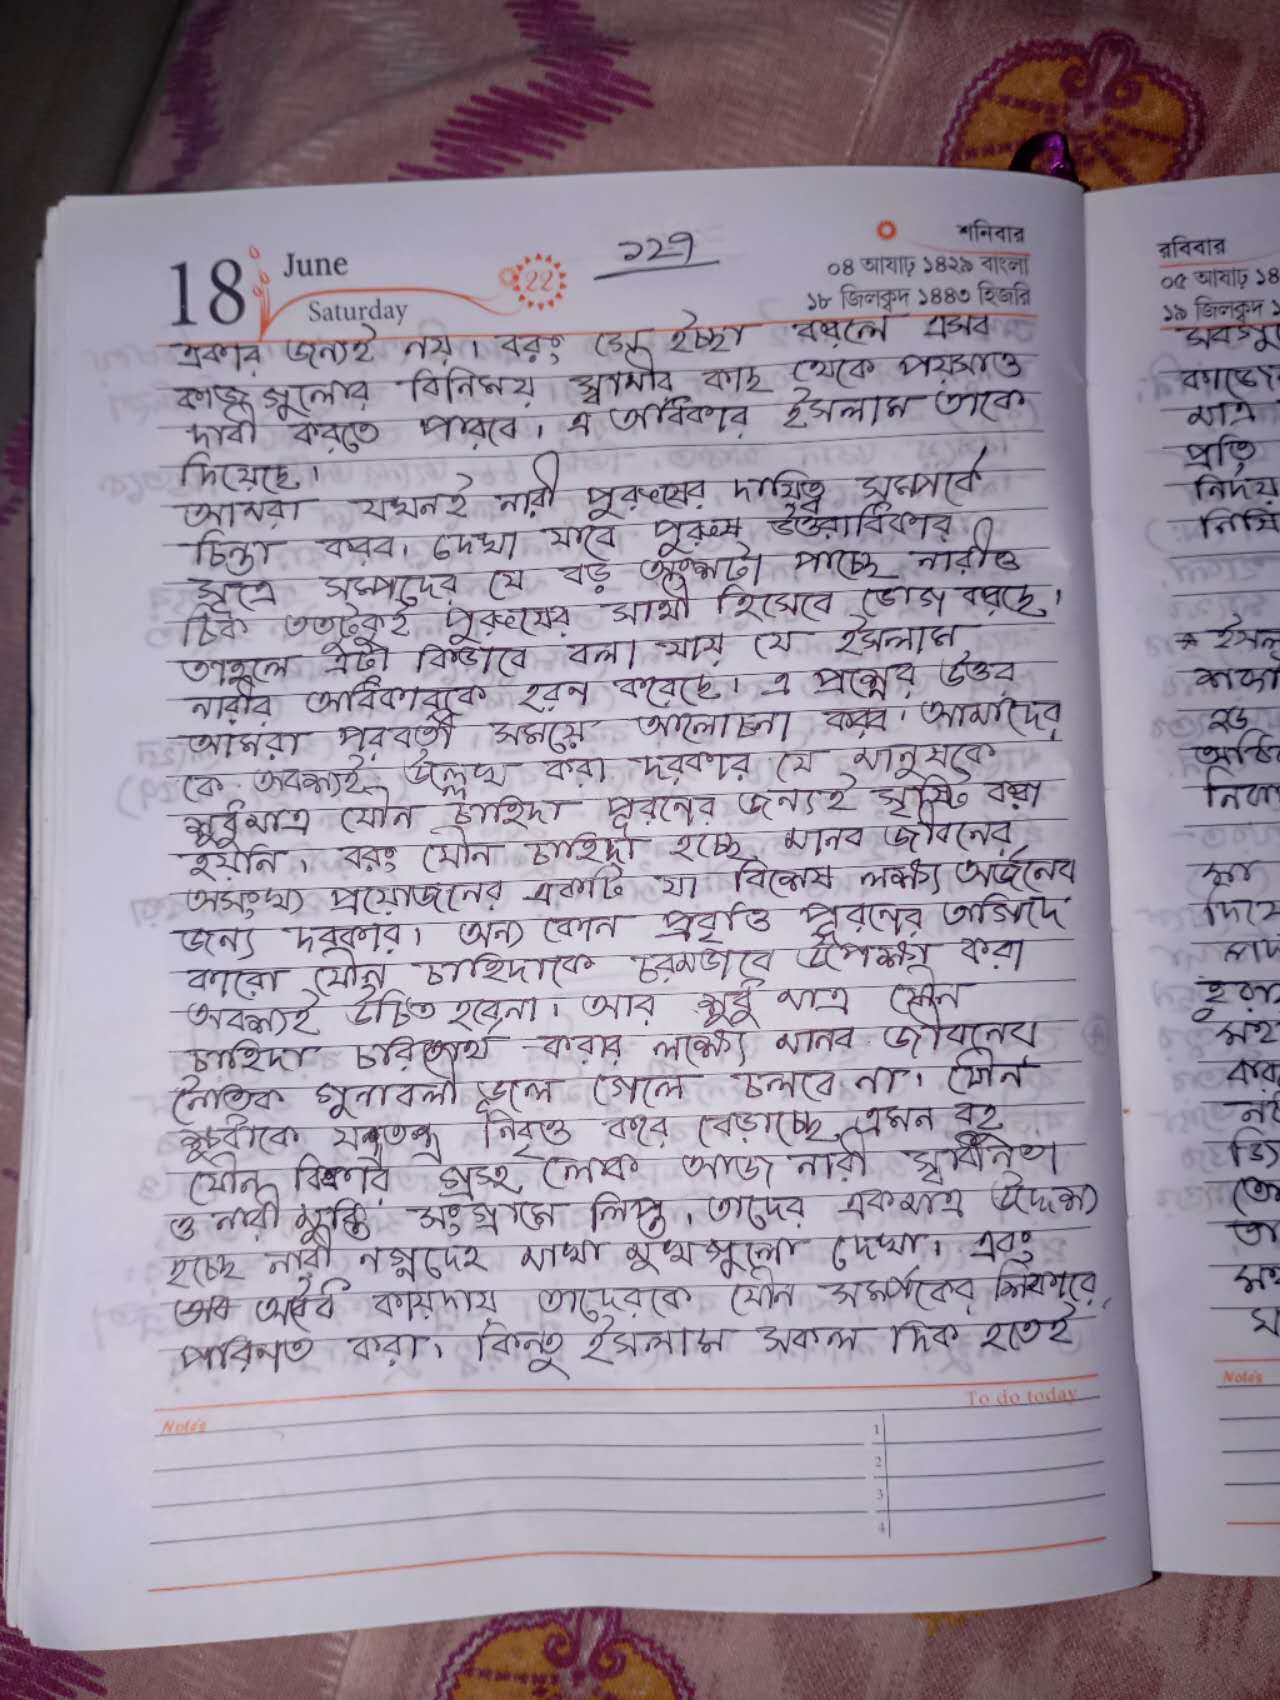 18 June
Saturday
22
১২৭
শনিবার
০৪ আষাঢ় ১৪২৯ বাংলা
১৮ জিলক্বদ ১৪৪৩ হিজরি
একার জন্যই নয়। বরং সে ইচ্ছা করলে এসব
কাজগুলোর বিনিময় স্বামীর কাছ থেকে পয়সাও
দাবী করতে পারবে। এ অধিকার ইসলাম তাকে
দিয়েছে।
আমরা যখনই নারী পুরুষের দায়িত্ব সম্পর্কে
চিন্তা করব। দেখা যাবে পুরুষ উত্তরাধিকার
সূত্রে সম্পদের যে বড় অংশটা পাচ্ছে নারীও
ঠিক ততটুকুই পুরুষের সাথী হিসেবে ভোগ করছে।
তাহলে এটা কিভাবে বলা যায় যে ইসলাম
নারীর অধিকারকে হরন করেছে। এ প্রশ্নের উত্তর
আমরা পরবর্তী সময়ে আলোচনা করব। আমাদের
কে অবশ্যই উল্লেখ করা দরকার যে মানুষকে
শুধুমাত্র যৌন চাহিদা পূরনের জন্যই সৃষ্টি করা
হয়নি। বরং যৌন চাহিদা হচ্ছে মানব জীবনের
অসংখ্য প্রয়োজনের একটি যা বিশেষ লক্ষ্য অর্জনের
জন্য দরকার। অন্য কোন প্রবৃত্তি পূরনের তাগিদে
কারো যৌন চাহিদাকে চরমভাবে উপেক্ষা করা
অবশ্যই উচিত হবেনা। আর শুধু মাত্র যৌন
চাহিদা চরিতার্থ করার লক্ষ্যে মানব জীবনের
নৈতিক গুনাবলী ভূলে গেলে চলবে না। যৌন
যত্রতত্র নিবৃত্ত করে বেড়াচ্ছে এমন বহু
যৌন বিকার গ্রস্হ লোক আজ নারী স্বাধীনতা
ও নারী মুক্তি সংগ্রামে লিপ্ত। তাদের একমাত্র উদ্দেশ্য
হচ্ছে নারী নগ্নদেহ মাখা মুখগুলো দেখা। এবং
অবৈধ কায়দায় তাদেরকে যৌন সম্পর্কের শিকারে
পরিনত করা। কিন্তু ইসলাম সকল দিক হতেই
Notes
To do today
1
2
3
4
রবিবার
০৫ আষাঢ় ১৪
১৯ জিলক্বদ ১
মাত্র
প্রতি
নির্দয়
* ইসল
২ড
Notes